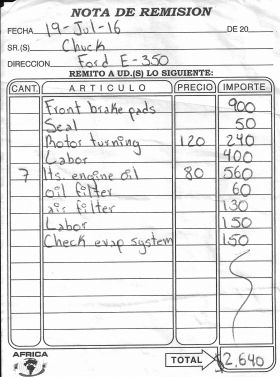 NOTA DE REMISION
FECHA 19-Jul-16 DE 20
SR.(S) Chuck
DIRECCION Ford E-350
REMITO A UD.(S) LO SIGUIENTE:
CANT. ARTICULO PRECIO IMPORTE
Front brake pads 900
Seal 50
Rotor turning 120 240
Labor 400
7 lts. engine oil 80 560
oil filter 60
air filter 130
Labor 150
Check evap system 150
AFRICA
TOTAL $2,640